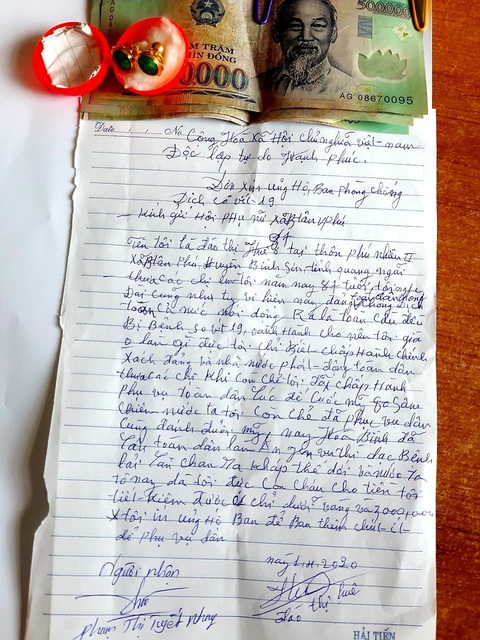 500000
AM TRĂM
HÌN ĐỒNG
0000
AG 08670095
Date / / No Cộng Hoà Xã Hội chủ nghĩa việt-nam
Độc lập tự do Hạnh phúc.
Đơn Xin ủng Hộ, Ban phòng chống
Dịch cô vít 19
- Kính gửi Hội PHụ nữ XãBình Phú
81
Tên tôi là đào thị Huê ở tại thôn phú nhiêu II
XãBình Phú, Huyện Bình Sơn, tỉnh quảng ngãi
thưa các chị em tôi năm nay 81 tuổi, tôi nghe
Đài cũng như ty vi hiện nay đang phòng Dịch
toàn Cả nước nói đông Ra là toàn Cầu đều
Bị Bệnh số vít 19, oành Hành cho nên tôi già
o làm gì được tôi chỉ Biết chấp Hành chính
Xách đảng và nhà nước phát-động toàn dân
thưa các chị Khi Còn trẻ tôi đã chấp Hành
phụ vụ toàn dân lúc đế Cuốc mỹ
Chiếm nước ta tôi Còn đã phục vụ dân
Cũng đánh đuổi mỹ nay Hoà Bình đã
lâu toàn dân làm Ăn yên vui thì dịc Bệnh
lại lan khắp thế dới và nước ta
tô nay đã tôi được Con cháu cho tiền tôi
tiết-Kiệm được 2 chỉ dưỡi vàng và 3.000,000đ
tôi ủng Hộ Ban để Ban thêm chút-ít-
để phụ vụ dân
Người nhận
ngày 1.4.2020
Đào thị Huê
phạm Thị Tuyết Nhung
HẢI TIẾN